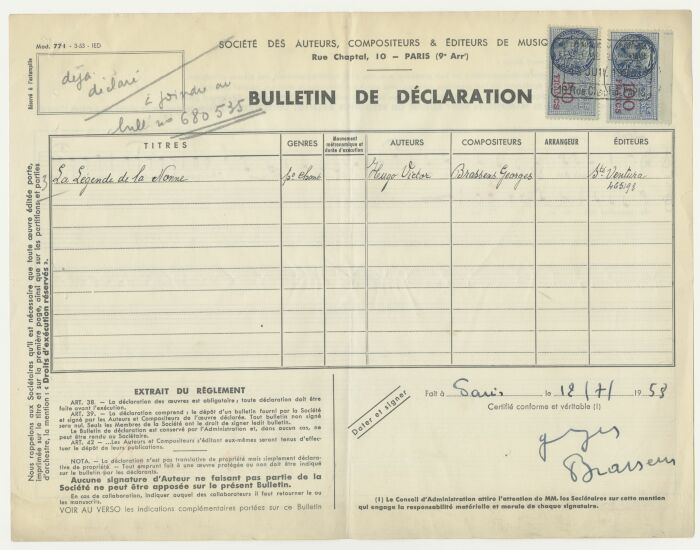 Mod. 774 - 3-53 - IED
SOCIÉTÉ DES AUTEURS, COMPOSITEURS & ÉDITEURS DE MUSIQ
Rue Chaptal, 10 — PARIS (9e Arrt)
Réservé à l'estampille
déjà
déclaré
à joindre au
bull no 680535
BULLETIN DE DÉCLARATION
TITRES
GENRES
Mouvement métronomique et durée d'exécution
AUTEURS
COMPOSITEURS
ARRANGEUR
ÉDITEURS
La Légende de la Nonne
po Chant
Hugo Victor
Brassens Georges
Sté Ventura
465193
Nous rappelons aux Sociétaires qu'il est nécessaire que toute œuvre éditée porte,
imprimée sur le titre et sur la première page, ainsi que sur les partitions et parties
d'orchestre, la mention : « Droits d'exécution réservés ».
EXTRAIT DU RÈGLEMENT
ART. 38. — La déclaration des œuvres est obligatoire ; toute déclaration doit être
faite avant l'exécution.
ART. 39. — La déclaration comprend : le dépôt d'un bulletin fourni par la Société
et signé par les Auteurs et Compositeurs de l'œuvre déclarée. Tout bulletin non signé
sera nul. Seuls les Membres de la Société ont le droit de signer ledit bulletin.
Le Bulletin de déclaration est conservé par l'Administration et, dans aucun cas, ne
peut être rendu au Sociétaire.
ART. 42 — ...Les Auteurs et Compositeurs s'éditant eux-mêmes seront tenus d'effec-
tuer le dépôt de leurs publications.
NOTA. — La déclaration n'est pas translative de propriété mais simplement déclara-
tive de propriété. — Tout emprunt fait à une œuvre protégée ou non doit être indiqué
sur le bulletin par les déclarants.
Aucune signature d'Auteur ne faisant pas partie de la
Société ne peut être apposée sur le présent Bulletin.
En cas de collaboration, indiquer auquel des collaborateurs il faut retourner le ou
les manuscrits.
VOIR AU VERSO les indications complémentaires portées sur ce Bulletin
Dater et signer
Fait à Paris le 18/7/ 1953
Certifié conforme et véritable (1)
georges
Brassens
(1) Le Conseil d'Administration attire l'attention de MM. les Sociétaires sur cette mention
qui engage la responsabilité matérielle et morale de chaque signataire.